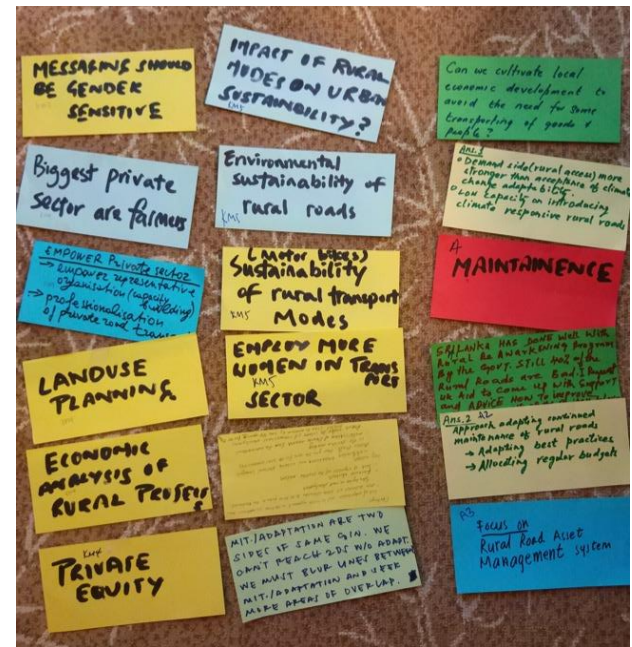 MESSAGING SHOULD
BE GENDER
SENSITIVE
Biggest private
sector are farmers
EMPOWER Private sector
→ empower representative
organisation (capacity
building)
→ professionalisation
of private road
LANDUSE
PLANNING
ECONOMIC
ANALYSIS OF
RURAL
KM4
PRIVATE
EQUITY
IMPACT OF RURAL
MODES ON URBAN
SUSTAINABILITY?
KM5
Environmental
sustainability of
rural roads
KM5
(Motor bikes)
Sustainability
of rural transport
Modes
KM5
EMPLOY MORE
WOMEN IN TRANSPORT
KM5
SECTOR
MIT./ADAPTATION ARE TWO
SIDES OF SAME COIN. WE
CAN'T REACH 2DS W/O ADAPT.
WE MUST BLUR LINES BETWEEN
MIT./ADAPTATION AND SEEK
MORE AREAS OF OVERLAP.
Can we cultivate local
economic development to
avoid the need for some
transporting of goods &
people?
Ans.1
Demand side (rural access) more
stronger than acceptance of climate
change adaptability.
Low capacity on introducing
climate responsive rural roads
4
MAINTAINENCE
SRI LANKA HAS DONE WELL WITH
Rural Re Awakening Program
By the Govt. STILL 40% of the
Rural Roads are Bad. I Request
UK Aid to Come up with Support
and ADVICE How to improve
Ans.2
Approach adapting continued
maintenance of rural roads
→ Adapting best practices
→ Allocating regular budgets
A3
Focus on
Rural Road Asset
Management system